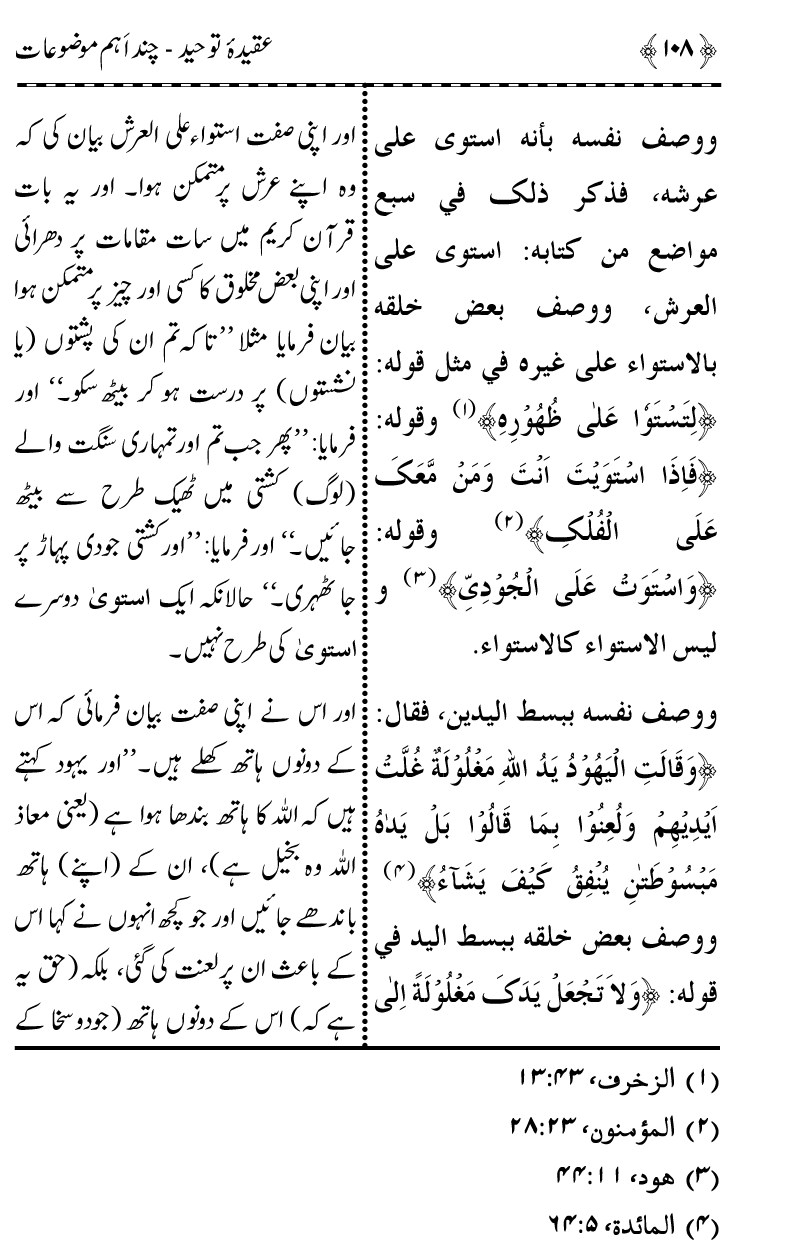 ﴿١٠٨﴾
عقیدۂ توحید - چند اَہم موضوعات
ووصف نفسه بأنه استوى على
عرشه، فذكر ذلک في سبع
مواضع من كتابه: استوى على
العرش، ووصف بعض خلقه
بالاستواء على غيره في مثل قوله:
﴿لِتَسْتَوٗا عَلٰی ظُهُوْرِهٖ﴾(۱) وقوله:
﴿فَاِذَا اسْتَوَیْتَ اَنْتَ وَمَنْ مَّعَکَ
عَلَی الْفُلْکِ﴾(۲) وقوله:
﴿وَاسْتَوَتْ عَلَی الْجُوْدِیِّ﴾(۳) و
ليس الاستواء كالاستواء.
ووصف نفسه ببسط اليدين، فقال:
﴿وَقَالَتِ الْیَهُوْدُ یَدُ اللهِ مَغْلُوْلَةٌ غُلَّتْ
اَیْدِیْهِمْ وَلُعِنُوْا بِمَا قَالُوْا بَلْ یَدٰهُ
مَبْسُوْطَتٰنِ یُنْفِقُ کَیْفَ یَشَآءُ﴾(۴)
ووصف بعض خلقه ببسط اليد في
قوله: ﴿وَلاَ تَجْعَلْ یَدَکَ مَغْلُوْلَةً اِلٰی
اور اپنی صفت استواء علی العرش بیان کی کہ
وہ اپنے عرش پر متمکن ہوا۔ اور یہ بات
قرآن کریم میں سات مقامات پر دھرائی
اور اپنی بعض مخلوق کا کسی اور چیز پر متمکن ہوا
بیان فرمایا مثلا ’’تاکہ تم ان کی پشتوں (یا
نشستوں) پر درست ہو کر بیٹھ سکو۔‘‘ اور
فرمایا: ’’پھر جب تم اور تمہاری سنگت والے
(لوگ) کشتی میں ٹھیک طرح سے بیٹھ
جائیں۔‘‘ اور فرمایا: ’’اور کشتی جودی پہاڑ پر
جا ٹھہری۔‘‘ حالانکہ ایک استویٰ دوسرے
استویٰ کی طرح نہیں۔
اور اس نے اپنی صفت بیان فرمائی کہ اس
کے دونوں ہاتھ کھلے ہیں۔’’اور یہود کہتے
ہیں کہ اللہ کا ہاتھ بندھا ہوا ہے (یعنی معاذ
اللہ وہ بخیل ہے)، ان کے (اپنے) ہاتھ
باندھے جائیں اور جو کچھ انہوں نے کہا اس
کے باعث ان پر لعنت کی گئی، بلکہ (حق یہ
ہے کہ) اس کے دونوں ہاتھ (جود و سخا کے
(۱) الزخرف، ۴۳:۱۳
(۲) المؤمنون، ۲۳:۲۸
(۳) هود، ۱۱:۴۴
(۴) المائدة، ۵:۶۴